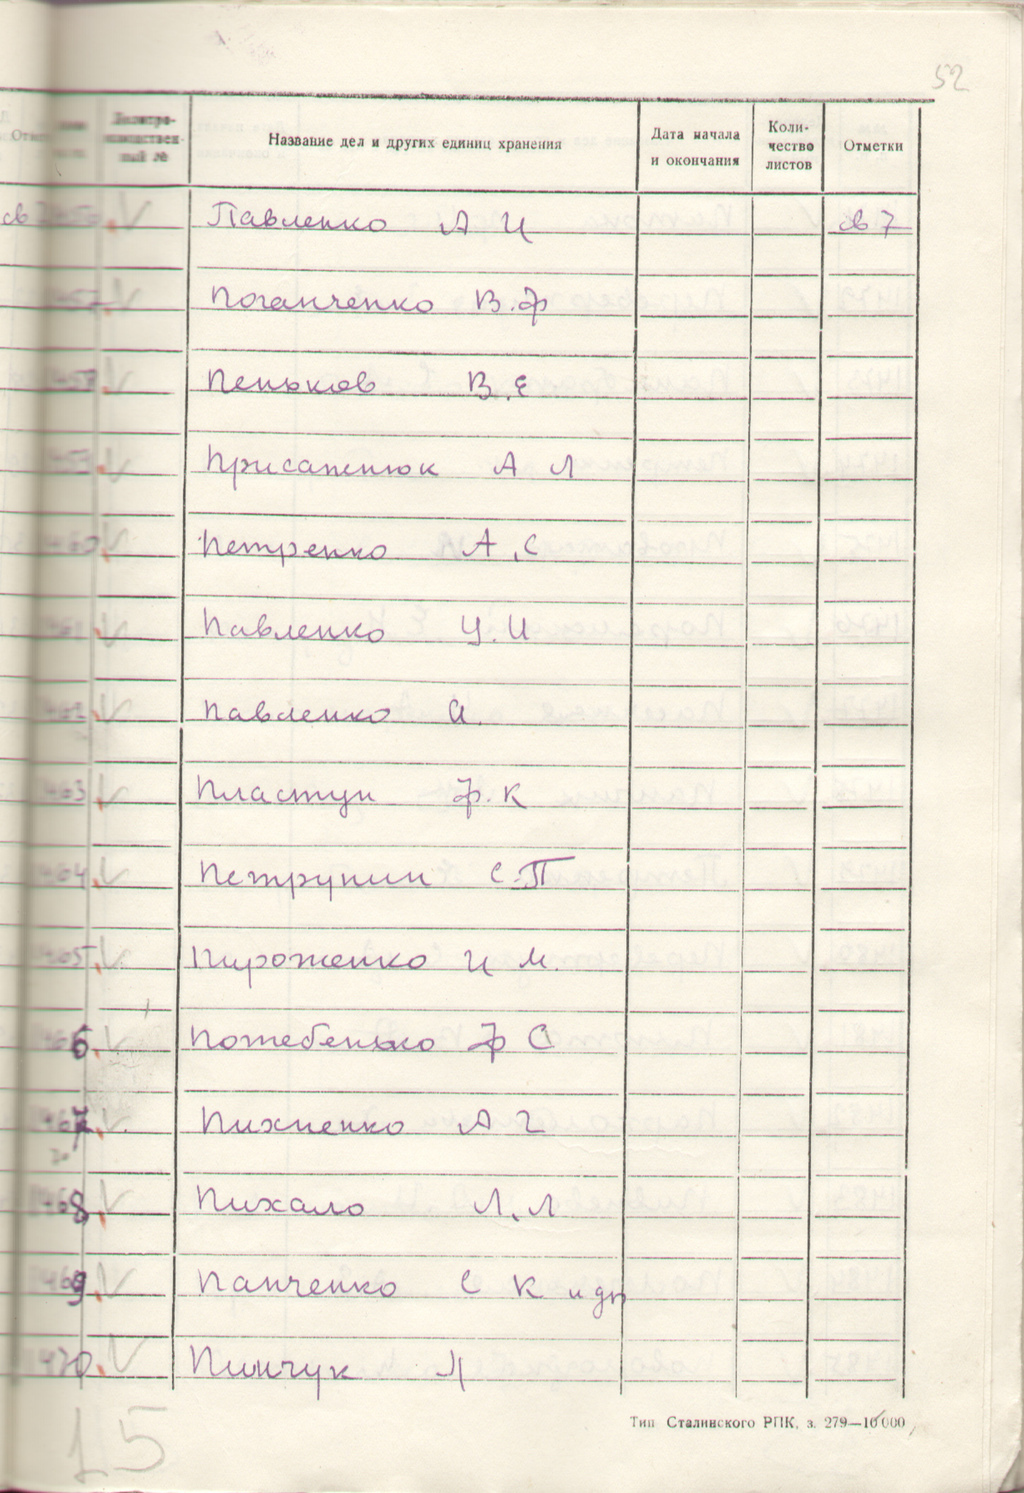 52
Название дел и других единиц хранения
Дата начала и окончания
Количество листов
Отметки
Павленко А И св 7
Поганченко В.Ф
1458 Пеньков В.Е
1459 Присаженюк А Л
1460 Петренко А.С
1461 Павленко У.И.
1462 Павленко И.
1463 Пластун Ф.К
1464 Петрунин С.П
1465 Пироженко И М.
1466 Потебенько Ф С
1467 Пихненко А Г
1468 Пихало Л.Л
1469 Панченко С К и др
1470 Пинчук Л
15
Тип Сталинского РПК, з. 279—10000